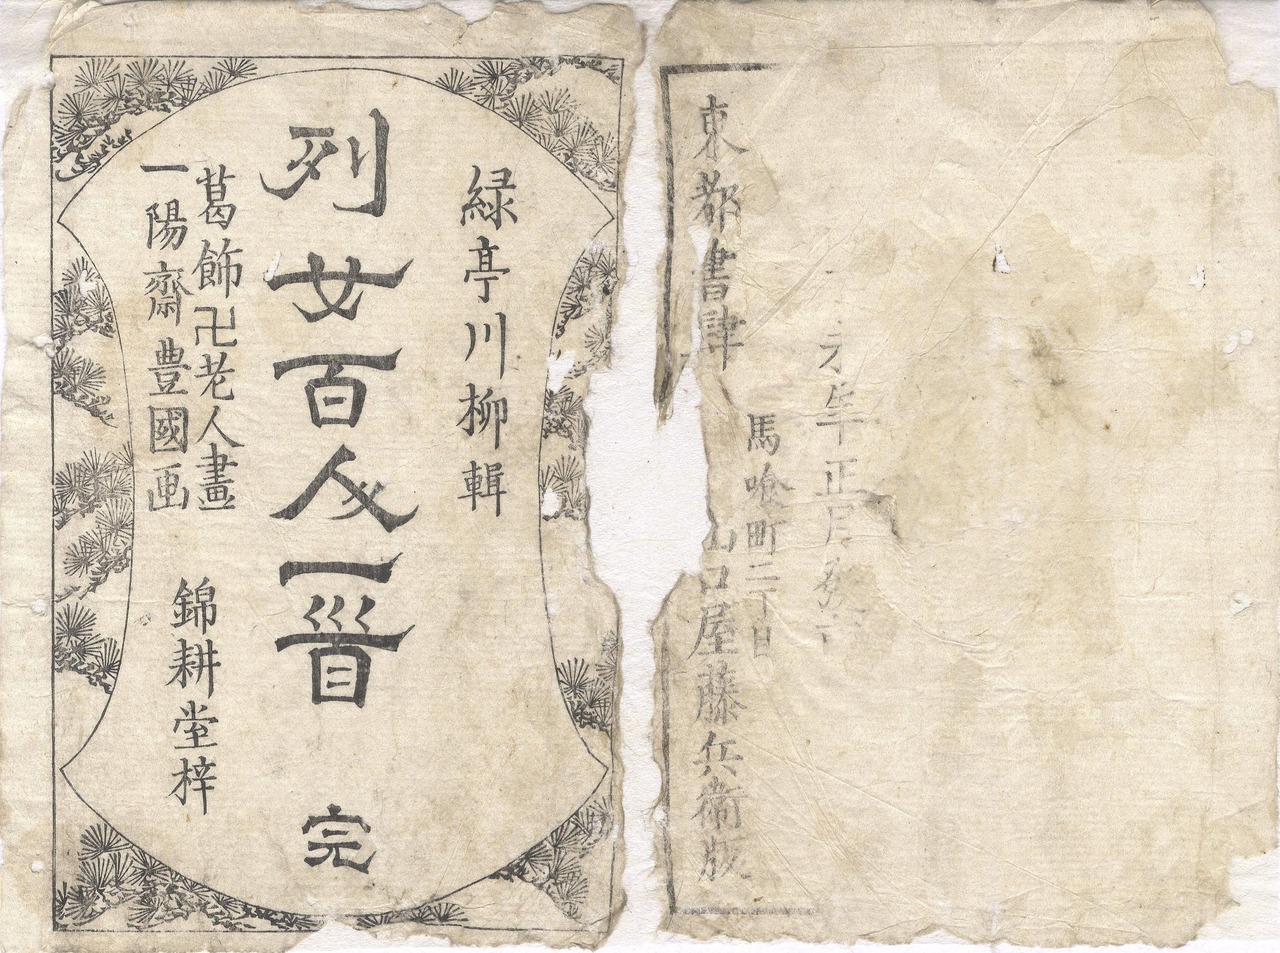 永年正月
馬喰町二丁目
東都書肆 山口屋藤兵衛版
緑亭川柳輯
列女百人一首 完
葛飾卍老人畫
一陽齋豊國画
錦耕堂梓